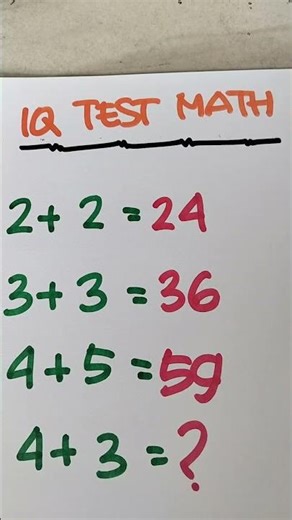 IQ TEST MATH
2+2=24
3+3=36
4+5=59
4+3=?